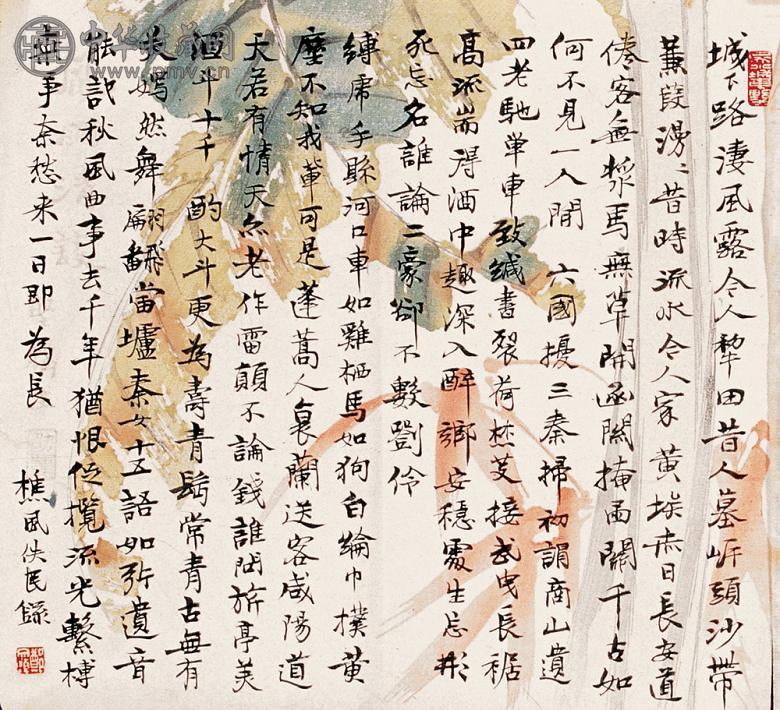 城下路淒風露今人犁田昔人墓岍頭沙帶
蒹葭漫〻昔時流水今人家黃埃赤日長安道
倦客無漿馬無草開函關掩函關千古如
何不見一人閒 六國擾三秦掃初謂商山遺
四老馳單車致緘書裂荷焚芰接武曳長裾
高流端得酒中趣深入醉鄉安穩處生忘形
死忘名誰論二豪卻不數劉伶
縛虎手懸河口車如雞栖馬如狗白綸巾撲黃
塵不知我輩可是蓬蒿人衰蘭送客咸陽道
天若有情天亦老作雷顛不論錢誰問旂亭美
酒斗十千 酌大斗更為壽青鬢常青古無有
笑嫣然舞翩翻當壚秦女十五語如弦遺音
能記秋風曲事去千年猶恨促攬流光繫榑
無事奈愁來一日即為長
樵風佚民錄
www.pmv.cn